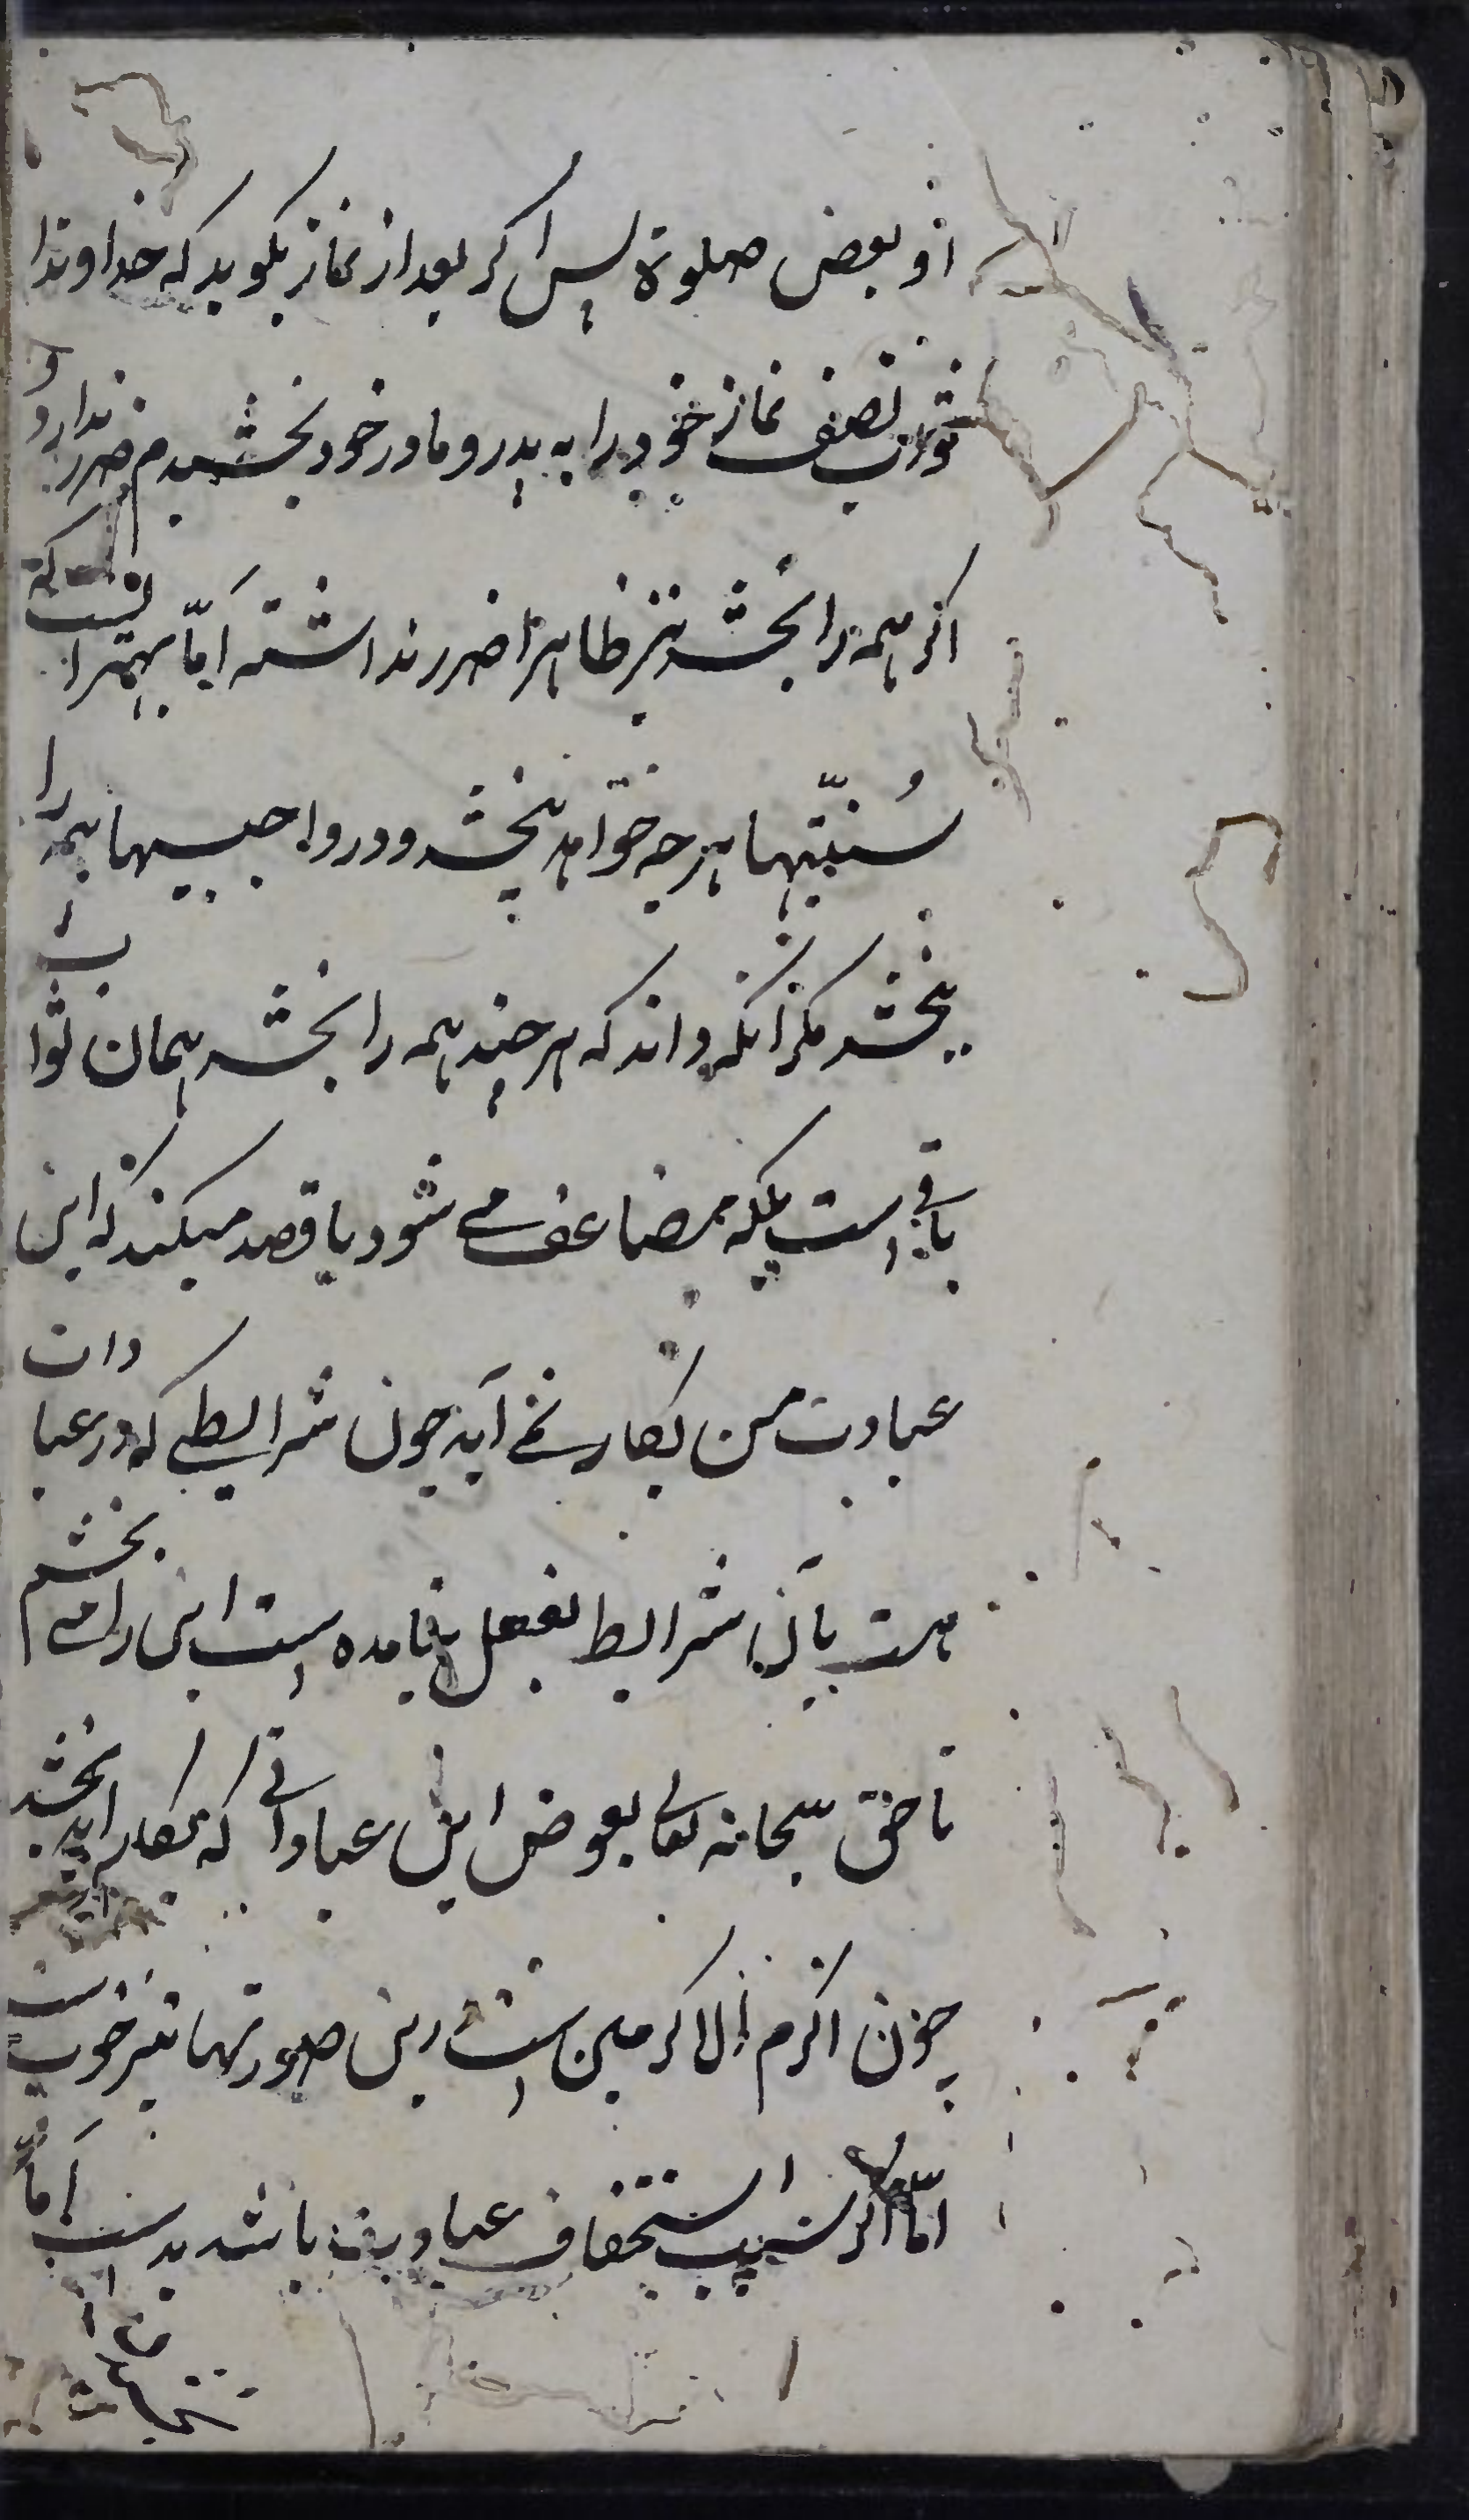 او بعض صلوة پس اگر بعد از نماز بکوید که خداوندا
ثواب نصف نماز خود را به پدر و مادر خود بخشیدم ضرر ندارد و
اکر همه را بخشد نیز ظاهرا ضرر نداشته امّا بهتر انست که
سُنّتیها هرچه خواهد بخشد و در واجبیها همه را
نبخشد مکر انکه داند که هر چند همه را بخشد همان ثواب
باقی است بلکه مضاعف می شود یا قصد میکند که این
عبادت من بکار نمی آید چون شرایطی که در عبادات
هست بآن شرایط بفعل نیامده است این را می بخشم
تا حق سبحانه تعالی بعوض این عباداتی که بکار اید بخشد
چون اکرم الاکرمین است این صورتها نیز خوبست
امّا اکر سبب استخفاف عبادت باشد بد است امّا